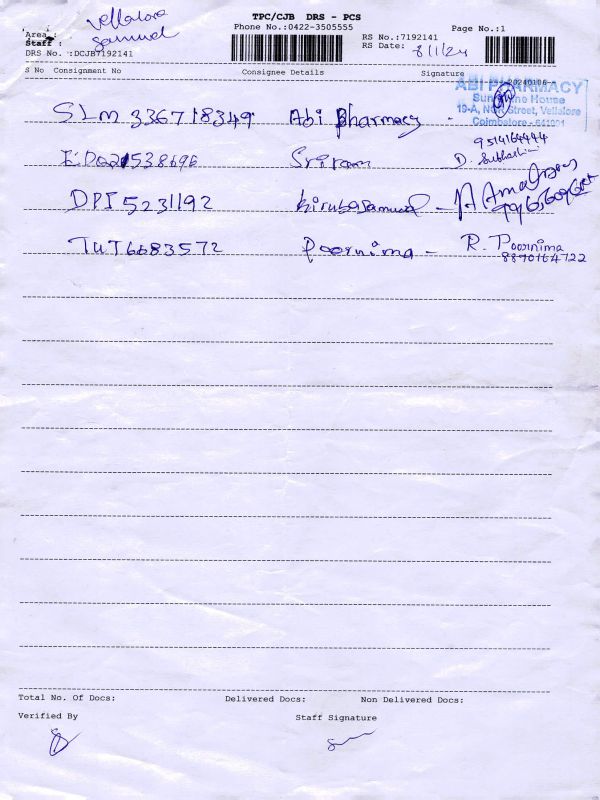 TPC/CJB DRS - PCS
Phone No.:0422-3505555
Page No.:1
Area : Vellalore
Staff : Samuel
RS No.:7192141
RS Date: 8/1/24
DRS No. :DCJB7192141
S No Consignment No Consignee Details Signature
20240106
ABI PHARMACY
House
19-A, Street, Vellalore
Coimbatore - 641
SLM 336718349 Abi Pharmacy -
9514164444
538696 Sriram D. Subhashini
DPI 5231192 Kirubasamuel -
TUT6683572 Poornima - R. Poornima
8870164722
Total No. Of Docs: Delivered Docs: Non Delivered Docs:
Verified By Staff Signature